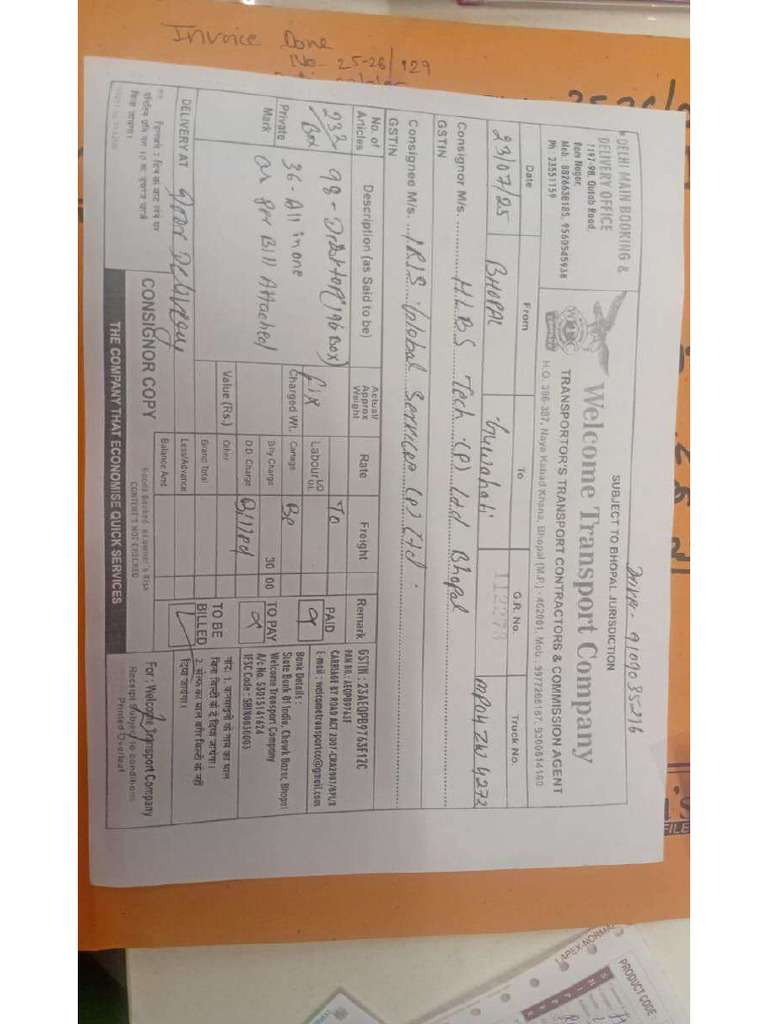 Invoice Done
No- 25-26/129
Driver - 9109035276
SUBJECT TO BHOPAL JURISDICTION
DELHI MAIN BOOKING &
DELIVERY OFFICE
7197-98, Qutab Road,
Ram Nagar,
Mob. 8826638185, 9560545938
Ph : 23551159
Welcome Transport Company
TRANSPORTOR'S TRANSPORT CONTRACTORS & COMMISSION AGENT
H.O. 386-387, Naya Kabad Khana, Bhopal (M.P.) - 462001, Mob. 9977266187, 9300814180
Date
From
To
G.R. No.
Truck No.
23/07/25
BHOPAL
Guwahati
112273
MP04 ZW 4272
Consignor M/s. H.L.B.S Tech (P) Ltd Bhopal
GSTIN
Consignee M/s. IRIS Global Services (P) Ltd.
GSTIN
No. of Articles
Description (as Said to be)
Actual/ Approx Weight
Rate
Freight
Remark
232 Box
98 - Desktop (196 Box)
36 - All in one
as per Bill Attached
Fix
Charged Wt.
Private Mark
Value (Rs.)
Labour L/O U/L
Cartage
Bilty Charge 30 00
D.D. Charge
Other
Grand Total
Less/Advance
Balance Amt
To
Be
Billed
PAID
TO PAY
TO BE BILLED
GSTIN : 23AEOPB9763F1ZC
PAN NO.: AEOPB9763F
CARRIAGE BY ROAD ACT 2007-CRA2007/BPL/8
E-mail : welcometransportco@gmail.com
Bank Details :
State Bank Of India, Chowk Bazar, Bhopal
Welcome Transport Company
A/c No. 53015141624
IFSC Code : SBIN0030003
DELIVERY AT Door Delivery
CONSIGNOR COPY
Goods Booked at Owner's Risk
CONTENTS NOT CHECKED
For : Welcome Transport Company
Receipt Subject to conditions
Printed Overleaf
THE COMPANY THAT ECONOMISE QUICK SERVICES
FILE
APEX-NORMAL
PRODUCT CODE: